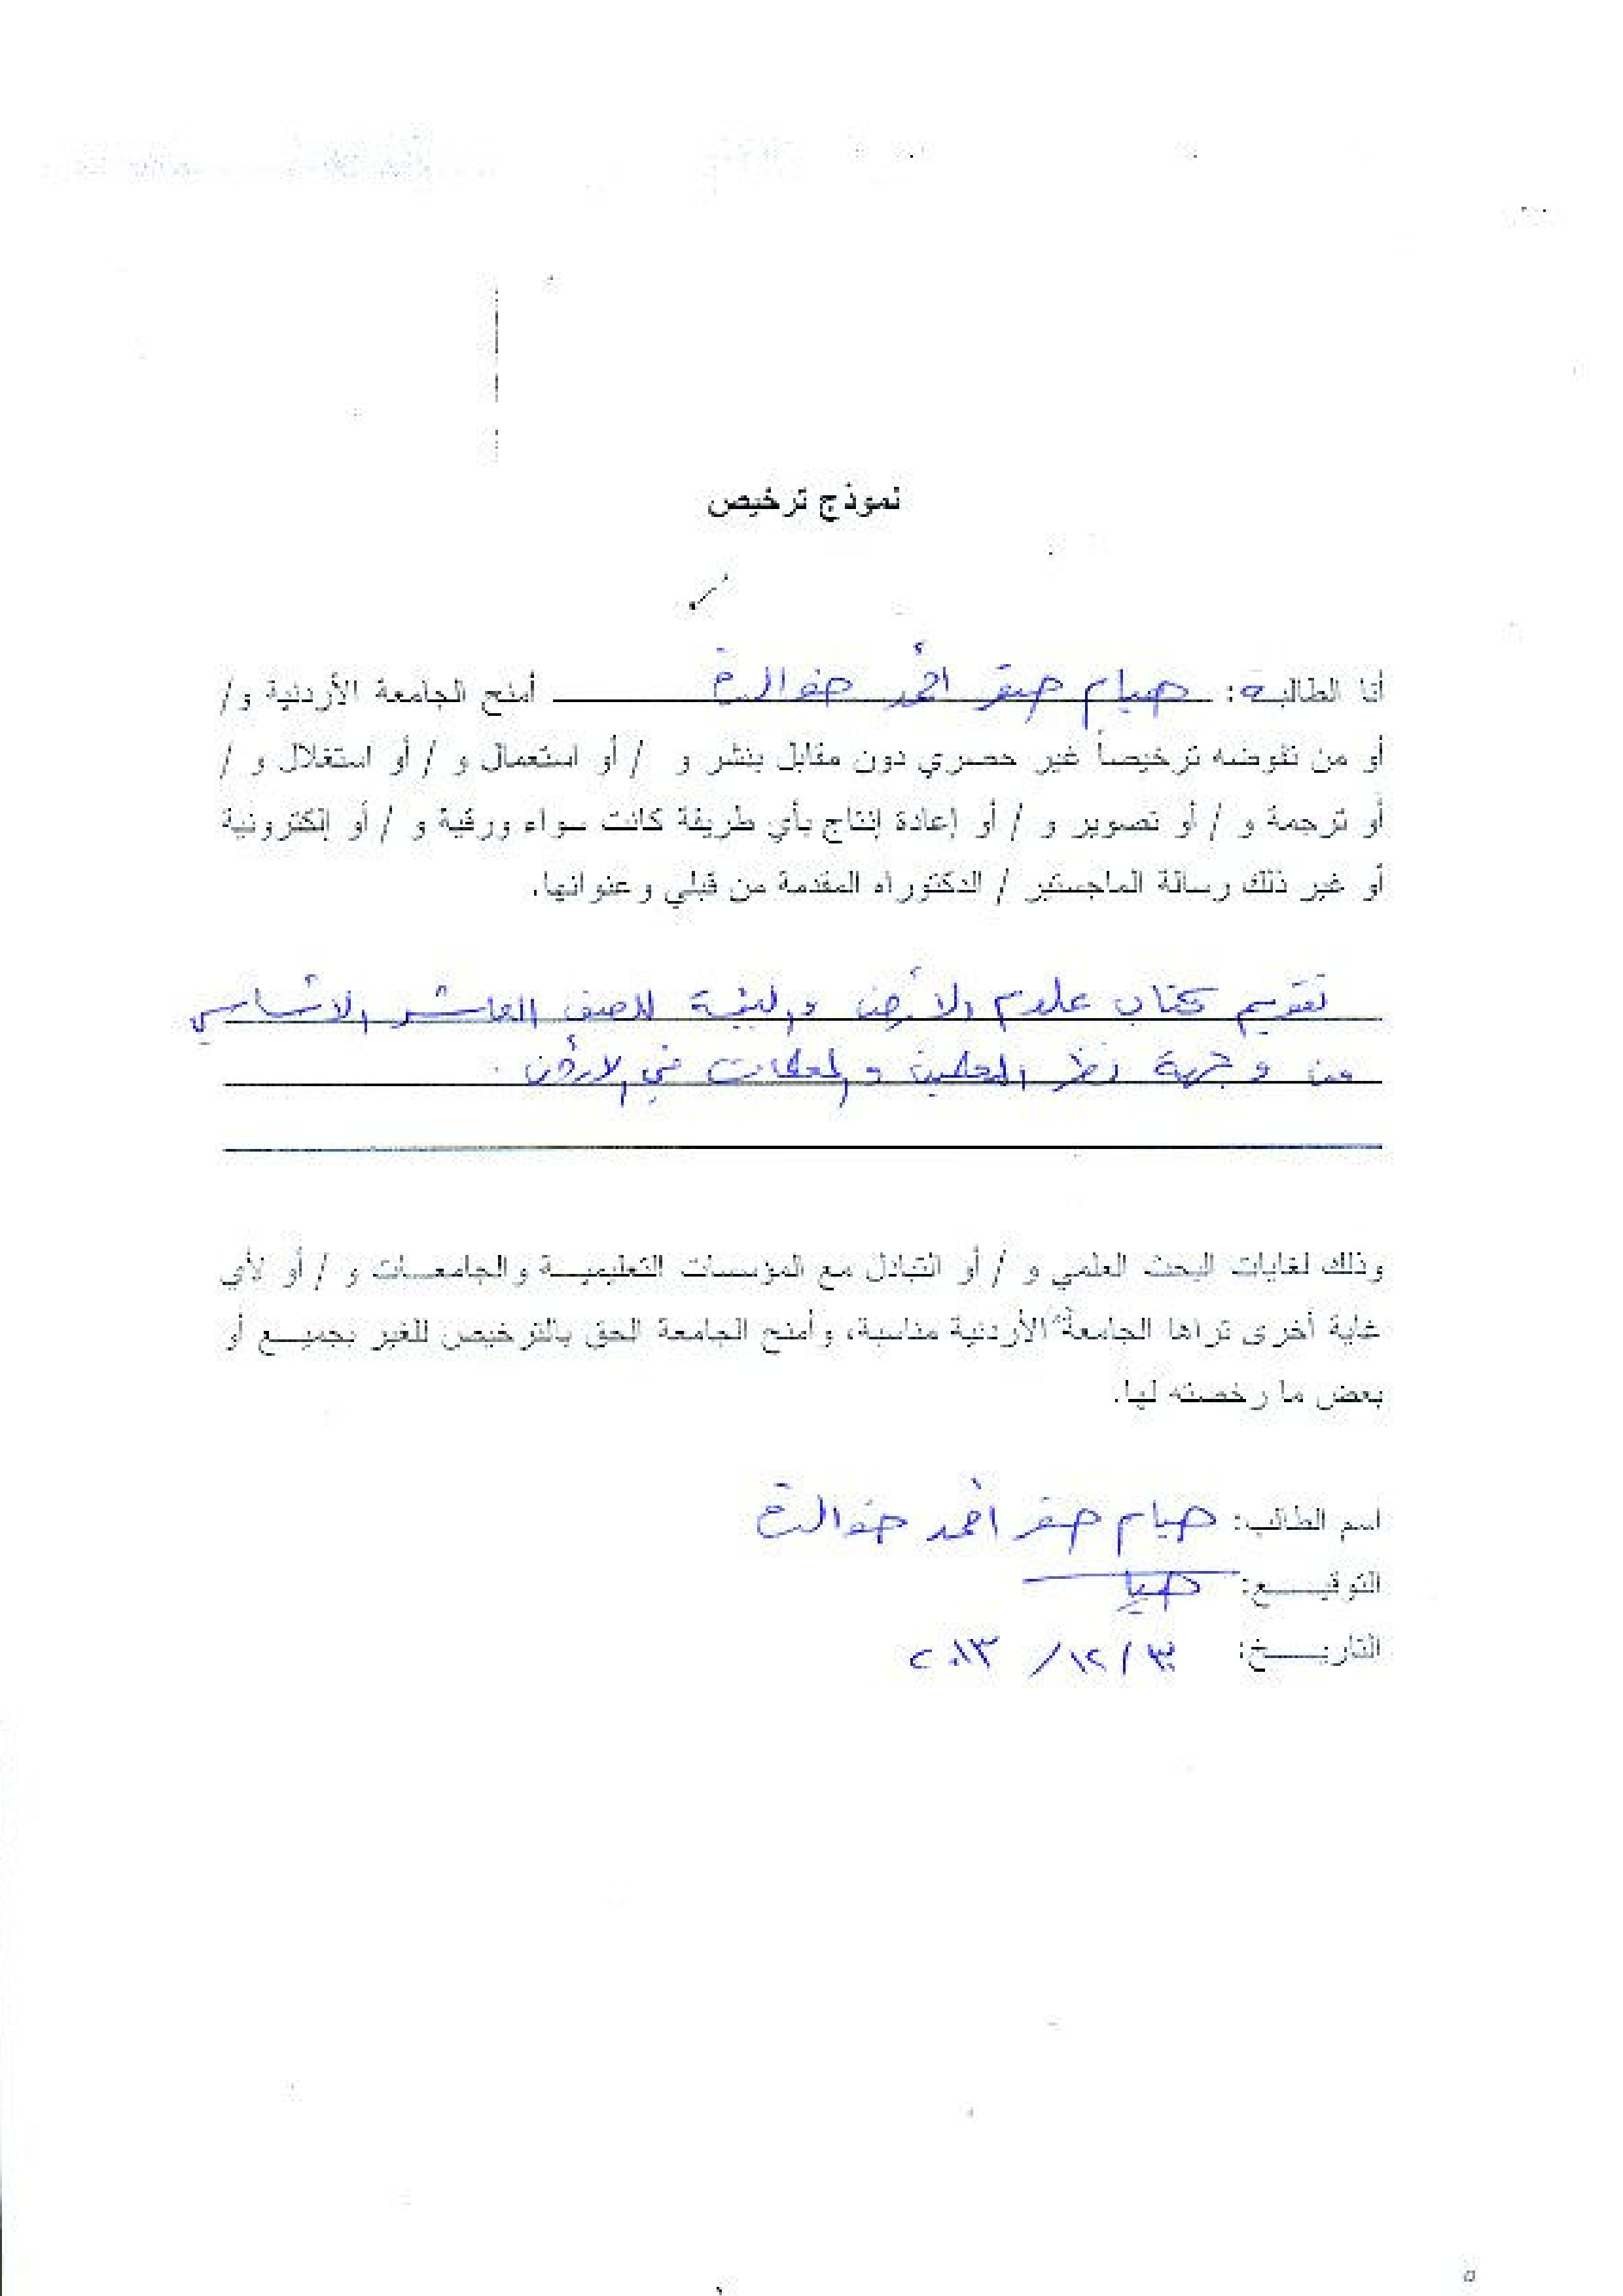 نموذج ترخيص
أنا الطالبة: صيام صقر أحمد خوالدة أمنح الجامعة الأردنية و/
أو من تفوضه ترخيصاً غير حصري دون مقابل بنشر و / أو استعمال و / أو استغلال و /
أو ترجمة و / أو تصوير و / أو إعادة إنتاج بأي طريقة كانت سواء ورقية و / أو إلكترونية
أو غير ذلك رسالة الماجستير / الدكتوراه المقدمة من قبلي وعنوانها.
تقويم كتاب علوم الأرض والبيئة للصف العاشر الأساسي
من وجهة نظر المعلمين والمعلمات في الأردن .
وذلك لغايات البحث العلمي و / أو التبادل مع المؤسسات التعليمية والجامعات و / أو لأي
غاية أخرى تراها الجامعة الأردنية مناسبة، وأمنح الجامعة الحق بالترخيص للغير بجميع أو
بعض ما رخصته لها.
اسم الطالب: صيام صقر أحمد خوالدة
التوقيع: صيام
التاريخ: /١٢/ ٢٠١٣